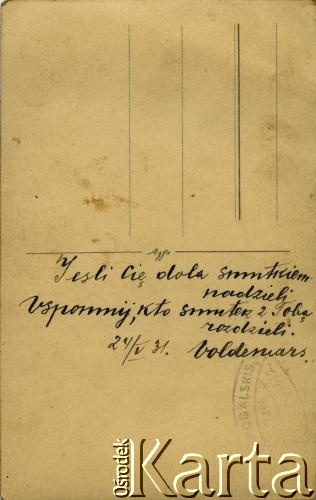 Agfa
Jeśli Cię dola smutkiem
nadzieli
Wspomnij, kto smutek z Tobą
rozdzieli.
24/V 31. Voldemars
OGALSKIS
Ośrodek
Karta